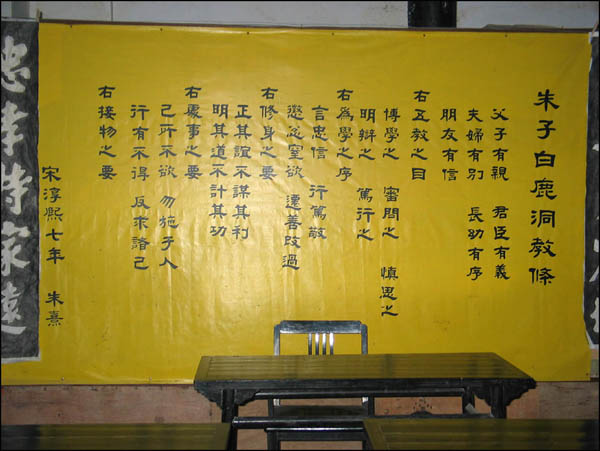 朱子白鹿洞教條
父子有親 君臣有義
夫婦有別 長幼有序
朋友有信
右五教之目
博學之 審問之 慎思之
明辯之 篤行之
右爲學之序
言忠信 行篤敬
懲忿窒欲 遷善改過
右修身之要
正其誼不謀其利
明其道不計其功
右處事之要
己所不欲 勿施于人
行有不得 反求諸己
右接物之要
宋淳熙七年 朱熹
忠孝持家遠